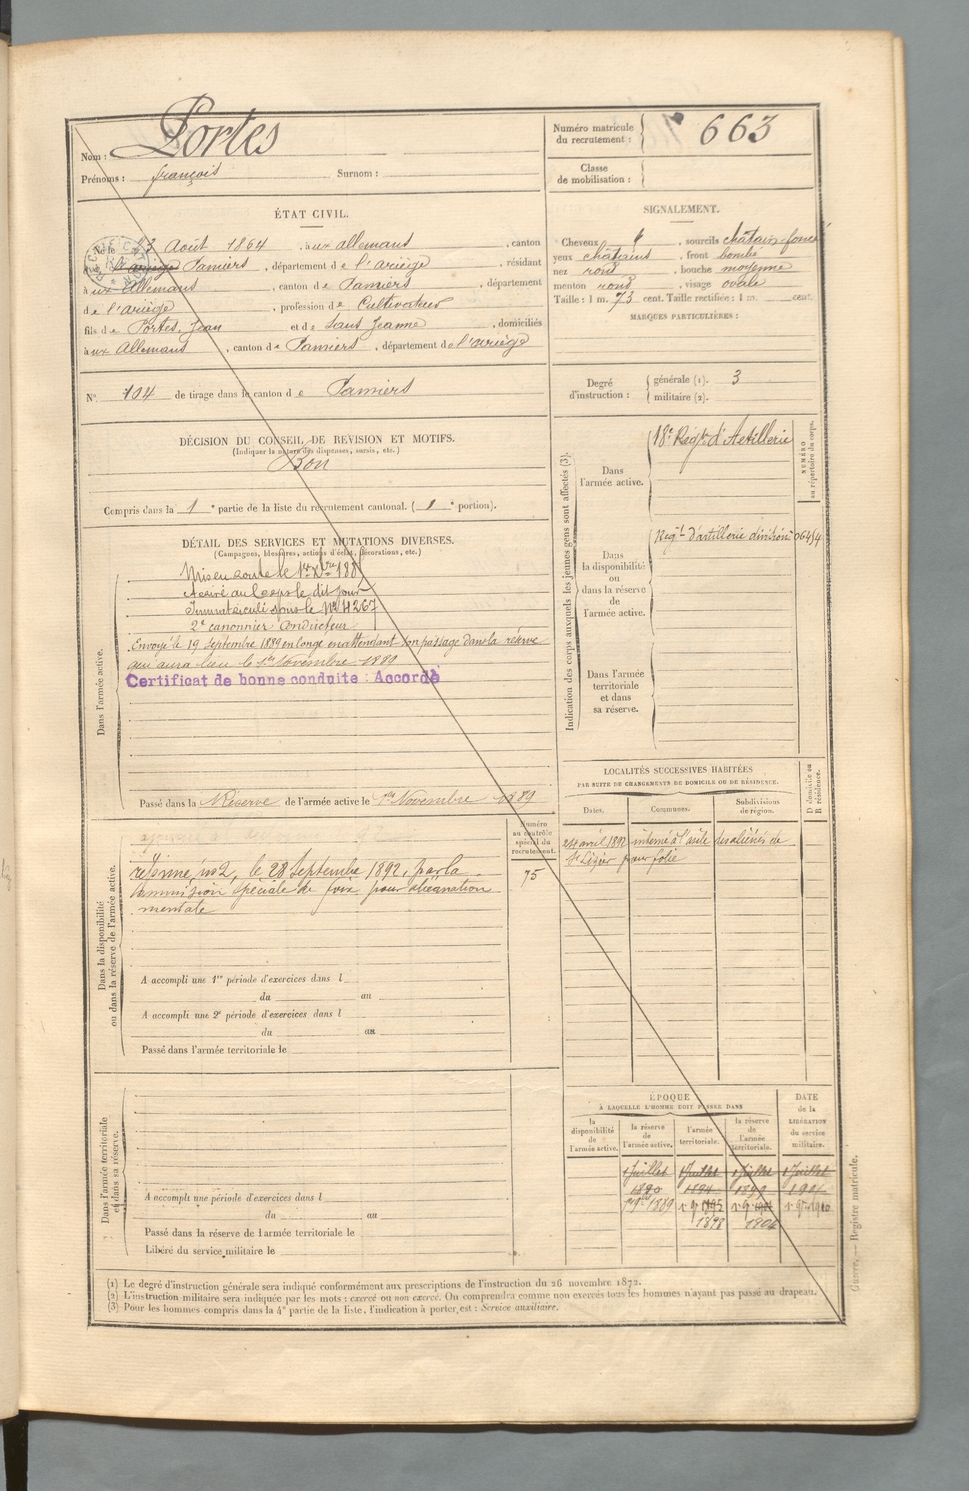 Nom : Portes
Prénoms : françois Surnom :
Numéro matricule du recrutement : 663
Classe de mobilisation :
ÉTAT CIVIL.
Né le 23 Août 1864, à ux allemans, canton
de l'ariège Pamiers, département de l'ariège, résidant
à ux Allemans, canton de Pamiers, département
de l'ariège, profession de Cultivateur
fils de Portes, Jean et de Sans Jeanne, domiciliés
à ux Allemans, canton de Pamiers, département de l'ariège
N° 104 de tirage dans le canton de Pamiers
SIGNALEMENT.
Cheveux, sourcils châtain-foncé
yeux châtains, front bombé
nez rond, bouche moyenne
menton rond, visage ovale
Taille : 1 m. 73 cent. Taille rectifiée : 1 m. cent.
MARQUES PARTICULIÈRES :
Degré d'instruction : générale (1). 3
militaire (2).
DÉCISION DU CONSEIL DE REVISION ET MOTIFS.
(Indiquer la nature des dispenses, sursis, etc.)
Bon
Compris dans la 1e partie de la liste du recrutement cantonal. (1e portion).
DÉTAIL DES SERVICES ET MUTATIONS DIVERSES.
(Campagnes, blessures, actions d'éclat, décorations, etc.)
Dans l'armée active.
Mis en route le 1er Xbre 188
Arrivé au Corps le dit jour
Immatriculé sous le N° 4267
2e canonnier Conducteur
Envoyé le 19 Septembre 1889 en congé en attendant son passage dans la réserve
qui aura lieu le 1er Novembre 1889
Certificat de bonne conduite : Accordé
Passé dans la Réserve de l'armée active le 1er Novembre 1889
Indication des corps auxquels les jeunes gens sont affectés (3).
Dans l'armée active.
18e Régt d'Artillerie
NUMÉRO au répertoire du corps.
Dans la disponibilité ou dans la réserve de l'armée active.
Régt d'artillerie divisionre
Dans l'armée territoriale et dans sa réserve.
LOCALITÉS SUCCESSIVES HABITÉES
PAR SUITE DE CHANGEMENTS DE DOMICILE OU DE RÉSIDENCE.
Dates. Communes. Subdivisions de région. D domicile ou R résidence.
24 avril 1892 interné à l'asile des aliénés de
St Lizier pour folie
Dans la disponibilité ou dans la réserve de l'armée active.
Numéro au contrôle spécial du recrutement.
75
réformé n° 2, le 28 Septembre 1892, par la
commission spéciale de foix pour aliénation
mentale
A accompli une 1re période d'exercices dans l
du au
A accompli une 2e période d'exercices dans l
du au
Passé dans l'armée territoriale le
Dans l'armée territoriale et dans sa réserve.
A accompli une période d'exercices dans l
du au
Passé dans la réserve de l'armée territoriale le
Libéré du service militaire le
ÉPOQUE
À LAQUELLE L'HOMME DOIT PASSER DANS
la disponibilité de l'armée active. la réserve de l'armée active. l'armée territoriale. la réserve de l'armée territoriale. DATE de la LIBÉRATION du service militaire.
1 Juillet 1 Juillet 1 Juillet 1 Juillet
1890 1894 1899
1898 1904
(1) Le degré d'instruction générale sera indiqué conformément aux prescriptions de l'instruction du 26 novembre 1872.
(2) L'instruction militaire sera indiquée par les mots : exercé ou non exercé. On comprendra comme non exercés tous les hommes n'ayant pas passé au drapeau.
(3) Pour les hommes compris dans la 4e partie de la liste, l'indication à porter est : Service auxiliaire.
Guerre. — Registre matricule.